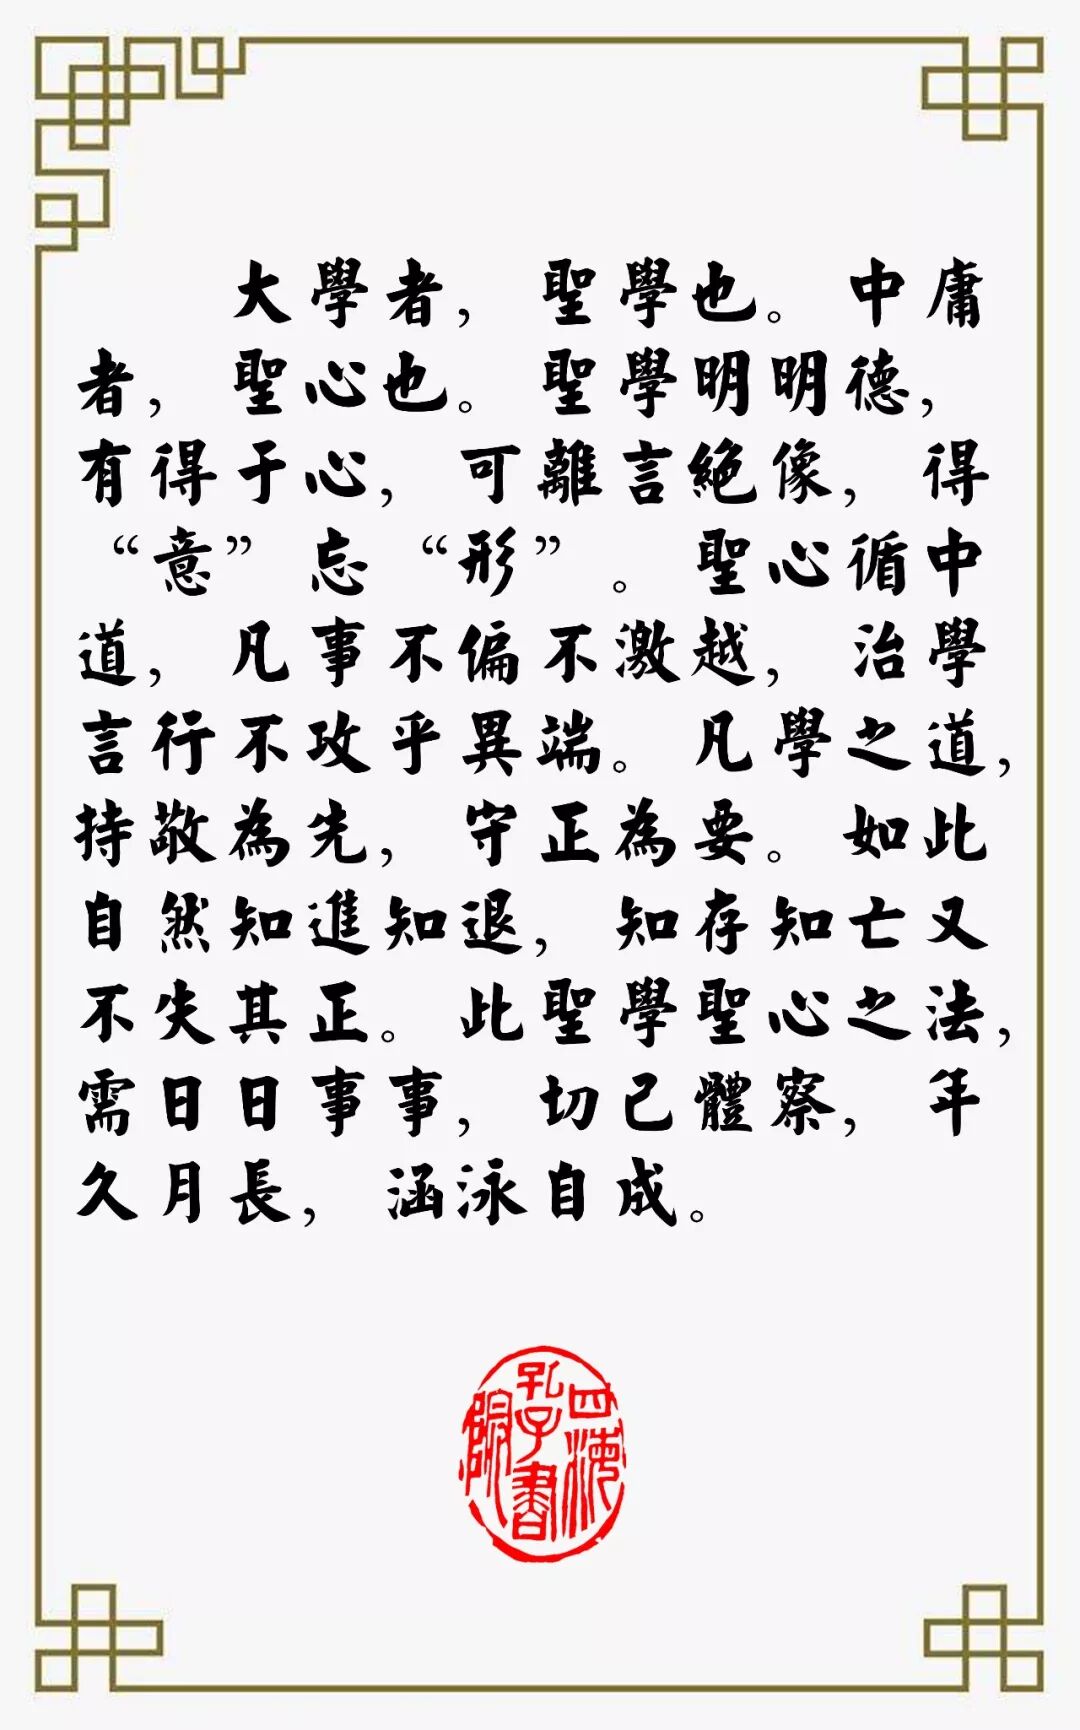 大學者，聖學也。中庸
者，聖心也。聖學明明德，
有得于心，可離言絕像，得
“意”忘“形”。聖心循中
道，凡事不偏不激越，治學
言行不攻乎異端。凡學之道，
持敬為先，守正為要。如此
自然知進知退，知存知亡又
不失其正。此聖學聖心之法，
需日日事事，切己體察，年
久月長，涵泳自成。
四海
孔子書
院